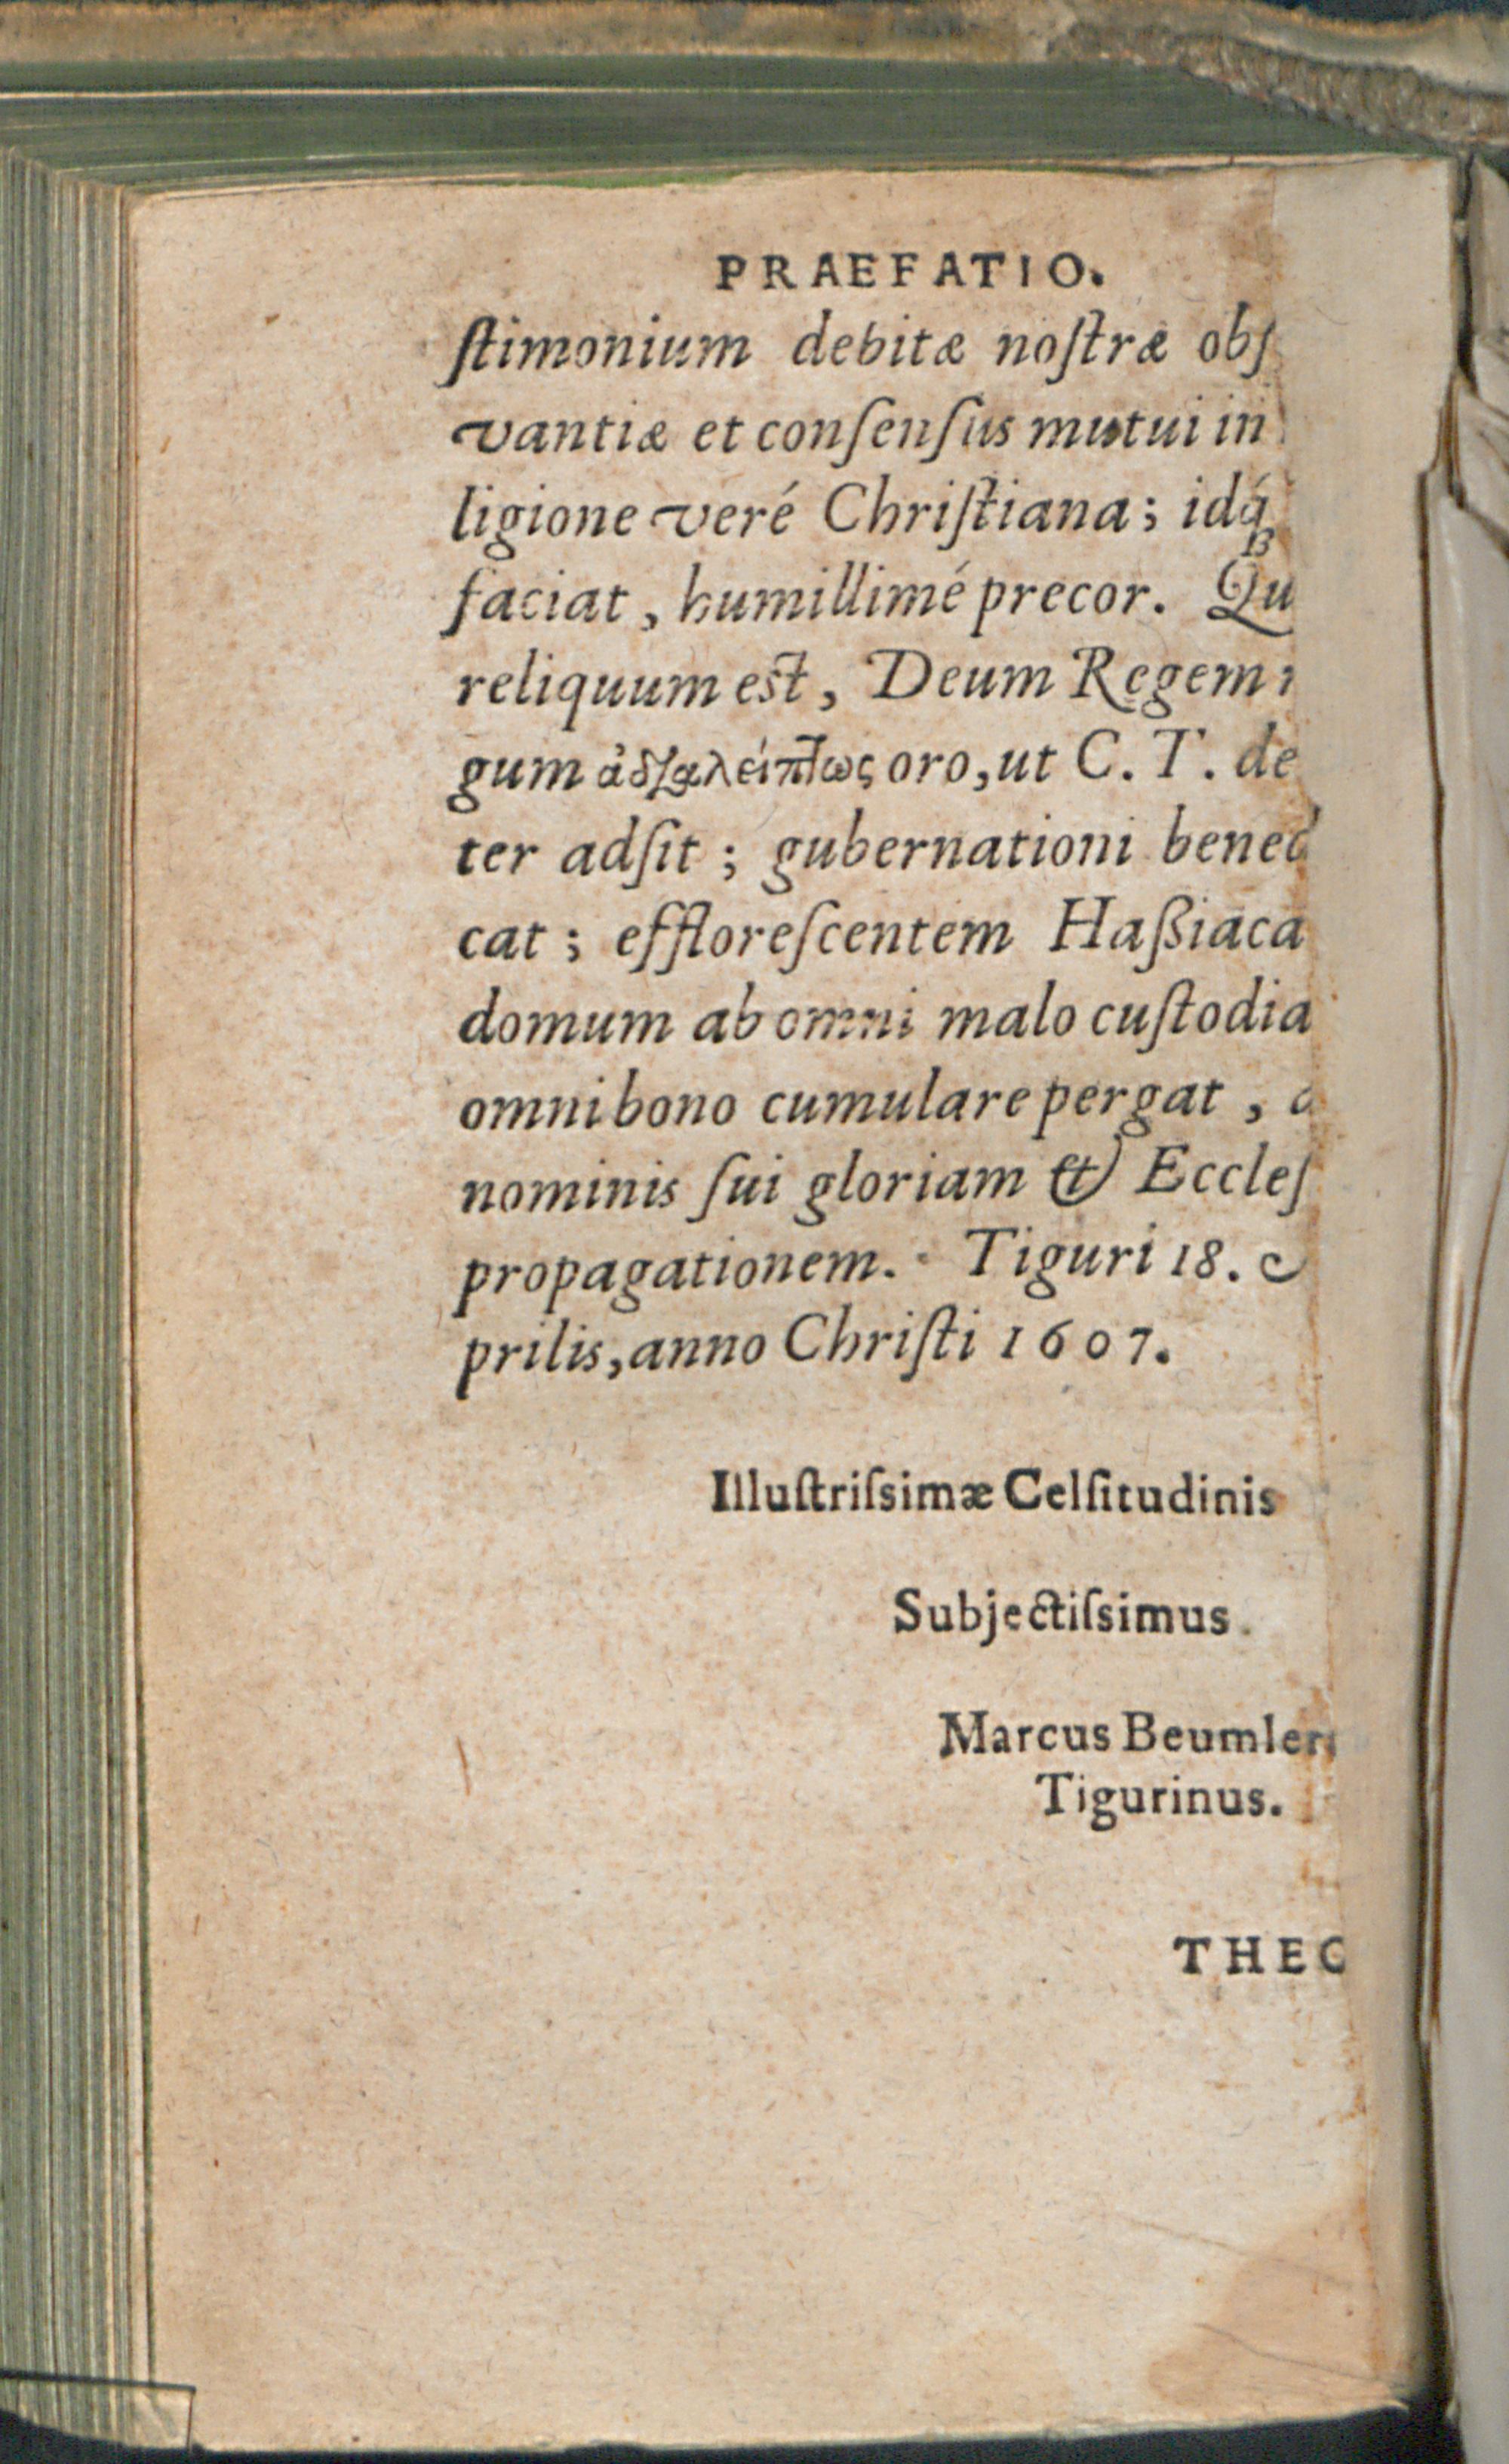 PRAEFATIO.
ſtimonium debitæ noſtræ obſ
vantiæ et conſenſus mutui in
ligione veré Chriſtiana; idq́ꝫ
faciat, humillimé precor. Qu
reliquum est, Deum Regem
gum ἀδιαλείπτως oro, ut C. T. de
ter adſit; gubernationi bened
cat; effloreſcentem Haßiaca
domum ab omni malo cuſtodia
omni bono cumulare pergat,
nominis ſui gloriam & Eccleſ
propagationem. Tiguri 18.
prilis, anno Chriſti 1607.
Illuſtriſsimæ Celſitudinis
Subjectiſsimus.
Marcus Beumler
Tigurinus.
THEO